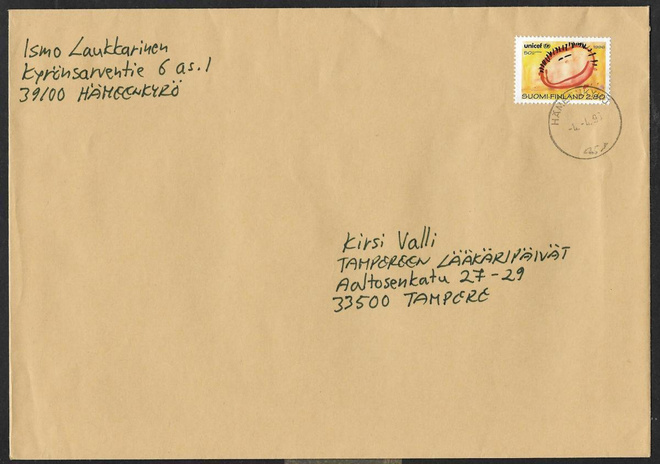 Ismo Laukkarinen
Kyrönsarventie 6 as. 1
39100 HÄMEENKYRÖ
unicef
SUOMI-FINLAND 2,80
Kirsi Valli
TAMPEREEN LÄÄKÄRIPÄIVÄT
Aaltosenkatu 27-29
33500 TAMPERE